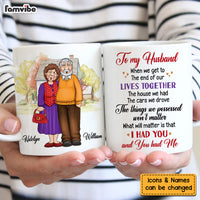 famvibe
To my Husband
When we get to
The end of our
LIVES TOGETHER
The house we had
The cars we drove
The things we possessed
won't matter
What will matter is that
I HAD YOU
and You had Me
Katelyn
William
Icons & Names
can be changed